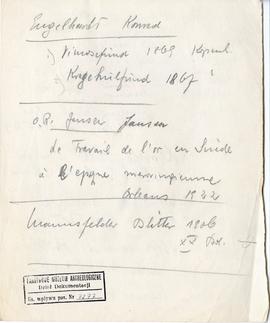 Engelhardt Konrad
1) Vimosefund 1869 Kopenh.
Kragehulfund 1867
O.R. Janse Janson
Le Travail de l'or en Suède
à l'époque mérovingienne
Orleans 1922
Mannsfelder Blätter 1906
XX Bd.
PAŃSTWOWE MUZEUM ARCHEOLOGICZNE
Dział Dokumentacji
Ks. wpływu poz. Nr